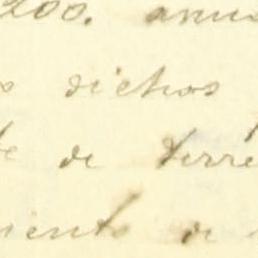 200. anu
s dichos
te de terre
iento de